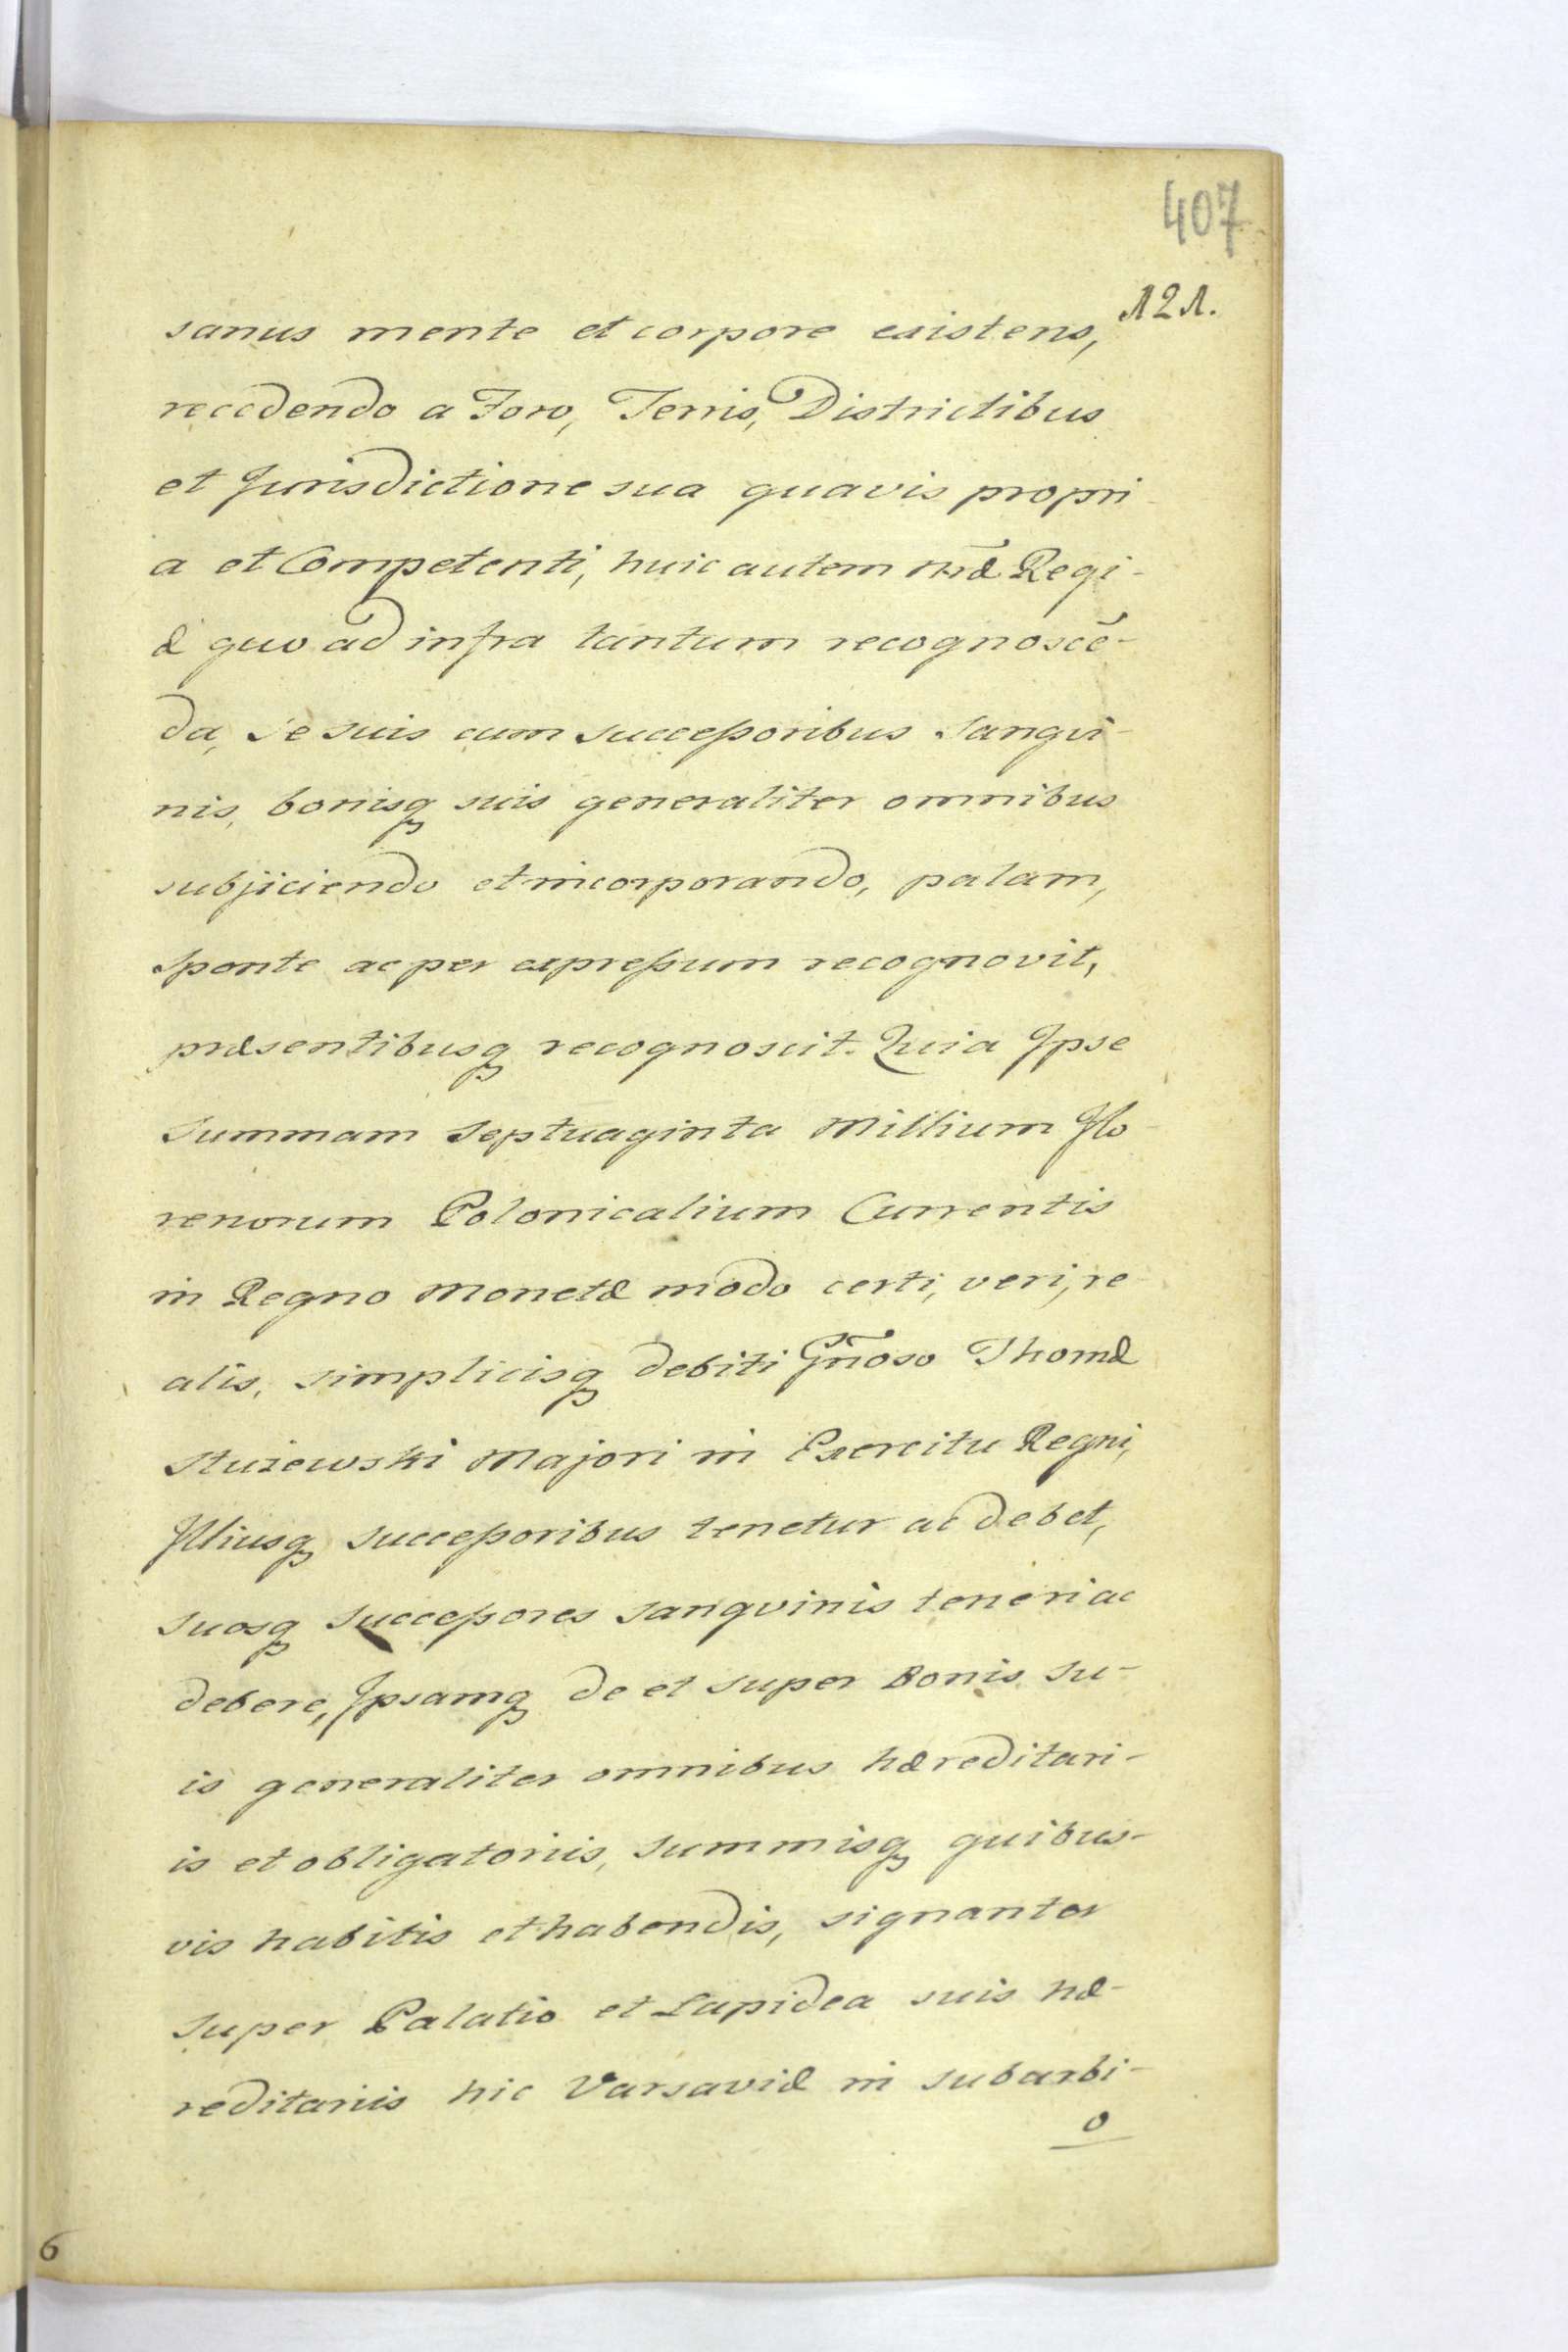 407
121.
sanus mente et corpore existens,
recedendo a Foro, Terris, Districtibus
et Jurisdictione sua quavis propri
a et Competenti, huic autem nræ Regi-
æ quo ad infra tantum recognoscē-
da, se suis cum successoribus sangvi-
nis, bonisq suis generaliter omnibus
subjiciendo et incorporando, palam,
sponte ac per expressum recognovit,
præsentibusq recognoscit. Quia Ipse
summam septuaginta Millium Flo
renorum Polonicalium Currentis
in Regno Monetæ modo certi, veri, re
alis, simplicisq debiti Gñoso Thomæ
Majori in Exercitu Regni,
Illiusq successoribus tenetur ac debet,
suosq successores sangvinis teneri ac
debere, Ipsamq de et super Bonis su-
is generaliter omnibus hæreditari-
is et obligatoriis, summisq quibus-
vis habitis et habendis, signanter
super Palatio et Lapidea suis hæ-
reditariis hic Varsaviæ in subarbi-
o
6